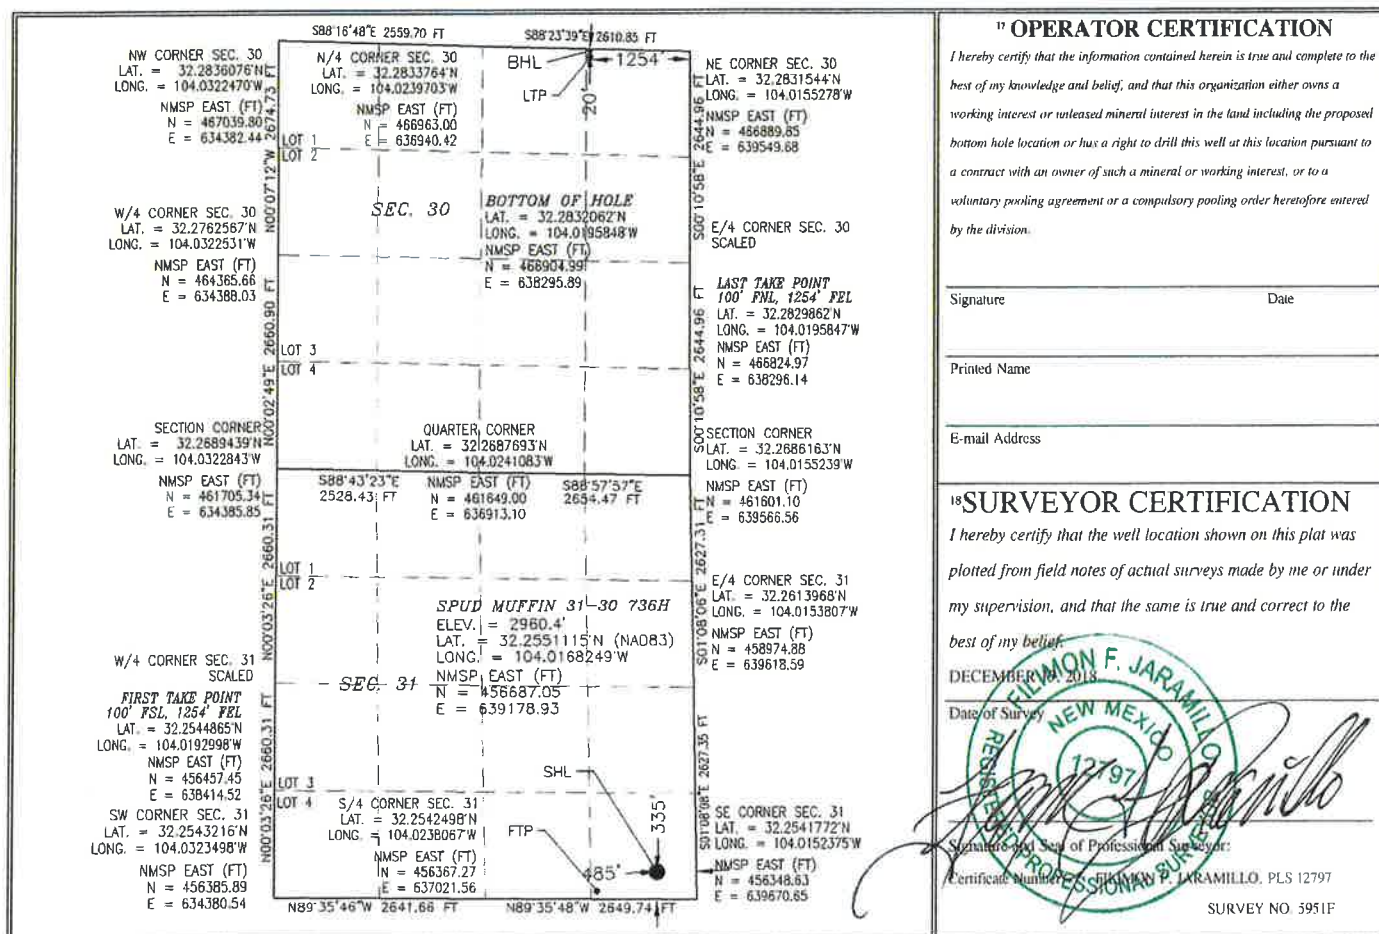 S88°16'48"E 2559.70 FT
S88°23'39"E 2610.85 FT
NW CORNER SEC. 30
LAT. = 32.2836076'N
LONG. = 104.0322470'W
NMSP EAST (FT)
N = 467039.80
E = 634382.44
N/4 CORNER SEC. 30
LAT. = 32.2833764'N
LONG. = 104.0239703'W
NMSP EAST (FT)
N = 466963.00
E = 636940.42
BHL
LTP
1254'
20'
NE CORNER SEC. 30
LAT. = 32.2831544'N
LONG. = 104.0155278'W
NMSP EAST (FT)
N = 466889.85
E = 639549.68
LOT 1
LOT 2
N00°07'12"W 2674.73 FT
S00°10'58"E 2644.96 FT
W/4 CORNER SEC. 30
LAT. = 32.2762567'N
LONG. = 104.0322531'W
NMSP EAST (FT)
N = 464365.66
E = 634388.03
SEC. 30
BOTTOM OF HOLE
LAT. = 32.2832062'N
LONG. = 104.0195848'W
NMSP EAST (FT)
N = 466904.99
E = 638295.89
E/4 CORNER SEC. 30
SCALED
LAST TAKE POINT
100' FNL, 1254' FEL
LAT. = 32.2829862'N
LONG. = 104.0195847'W
NMSP EAST (FT)
N = 466824.97
E = 638296.14
N00°02'49"E 2660.90 FT
S00°10'58"E 2644.96 FT
LOT 3
LOT 4
SECTION CORNER
LAT. = 32.2689439'N
LONG. = 104.0322843'W
NMSP EAST (FT)
N = 461705.34
E = 634385.85
QUARTER CORNER
LAT. = 32.2687693'N
LONG. = 104.0241083'W
NMSP EAST (FT)
N = 461649.00
E = 636913.10
S88°43'23"E
2528.43 FT
S88°57'57"E
2654.47 FT
SECTION CORNER
LAT. = 32.2686163'N
LONG. = 104.0155239'W
NMSP EAST (FT)
N = 461601.10
E = 639566.56
N00°03'26"E 2660.31 FT
S01°08'06"E 2627.31 FT
LOT 1
LOT 2
SPUD MUFFIN 31-30 736H
ELEV. = 2960.4'
LAT. = 32.2551115'N (NAD83)
LONG. = 104.0168249'W
NMSP EAST (FT)
N = 456687.05
E = 639178.93
E/4 CORNER SEC. 31
LAT. = 32.2613968'N
LONG. = 104.0153807'W
NMSP EAST (FT)
N = 458974.88
E = 639618.59
W/4 CORNER SEC. 31
SCALED
SEC. 31
FIRST TAKE POINT
100' FSL, 1254' FEL
LAT. = 32.2544865'N
LONG. = 104.0192998'W
NMSP EAST (FT)
N = 456457.45
E = 638414.52
N00°03'26"E 2660.31 FT
S01°08'08"E 2627.35 FT
LOT 3
LOT 4
SW CORNER SEC. 31
LAT. = 32.2543216'N
LONG. = 104.0323498'W
NMSP EAST (FT)
N = 456385.89
E = 634380.54
S/4 CORNER SEC. 31
LAT. = 32.2542498'N
LONG. = 104.0238067'W
NMSP EAST (FT)
N = 456367.27
E = 637021.56
SHL
FTP
335'
485'
SE CORNER SEC. 31
LAT. = 32.2541772'N
LONG. = 104.0152375'W
NMSP EAST (FT)
N = 456348.63
E = 639670.65
N89°35'46"W 2641.66 FT
N89°35'48"W 2649.74 FT
17 OPERATOR CERTIFICATION
I hereby certify that the information contained herein is true and complete to the
best of my knowledge and belief, and that this organization either owns a
working interest or unleased mineral interest in the land including the proposed
bottom hole location or has a right to drill this well at this location pursuant to
a contract with an owner of such a mineral or working interest, or to a
voluntary pooling agreement or a compulsory pooling order heretofore entered
by the division.
Signature Date
Printed Name
E-mail Address
18 SURVEYOR CERTIFICATION
I hereby certify that the well location shown on this plat was
plotted from field notes of actual surveys made by me or under
my supervision, and that the same is true and correct to the
best of my belief.
DECEMBER 2018
Date of Survey
FILIMON F. JARAMILLO
NEW MEXICO
12797
REGISTERED PROFESSIONAL SURVEYOR
Signature and Seal of Professional Surveyor:
Certificate Number: FILIMON F. JARAMILLO, PLS 12797
SURVEY NO. 5951F